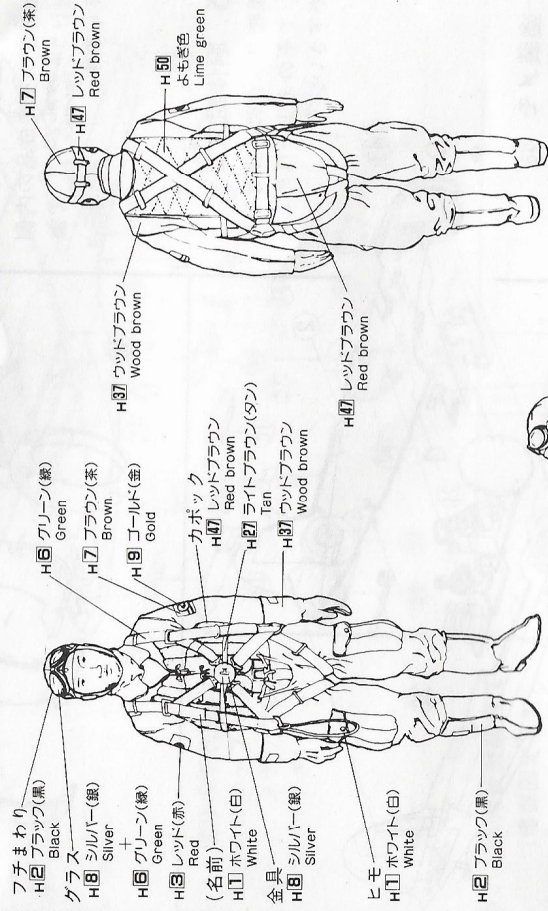 フチまわり
H2 ブラック(黒)
Black
グラス
H8 シルバー(銀)
Silver
+
H6 グリーン(緑)
Green
H3 レッド(赤)
Red
(名前)
H1 ホワイト(白)
White
金具
H8 シルバー(銀)
Silver
ヒモ
H1 ホワイト(白)
White
H2 ブラック(黒)
Black
H6 グリーン(緑)
Green
H7 ブラウン(茶)
Brown
H9 ゴールド(金)
Gold
カポック
H47 レッドブラウン
Red brown
H27 ライトブラウン(タン)
Tan
H37 ウッドブラウン
Wood brown
H7 ブラウン(茶)
Brown
H47 レッドブラウン
Red brown
H50
よもぎ色
Lime green
H37 ウッドブラウン
Wood brown
H47 レッドブラウン
Red brown